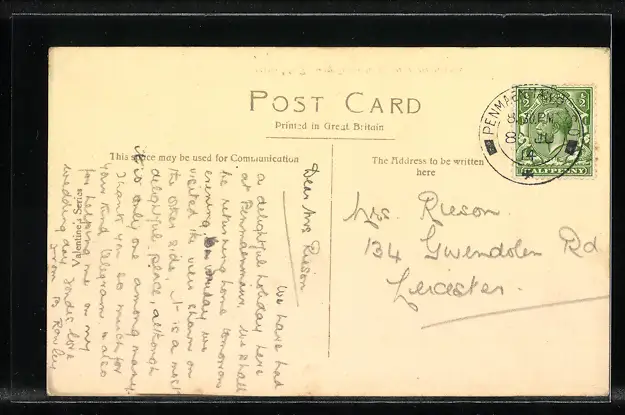 POST CARD
Printed in Great Britain
This space may be used for Communication
The Address to be written
here
PENMAENMAWR
8.30 PM
8 JU
14
½
½
HALFPENNY
Mrs. Rieson.
134 Gwendolen Rd
Leicester.
Valentines Series
Dear Mrs Rieson
We have had
a delightful holiday here
at Penmaenmawr, we shall
be returning home tomorrow
evening. On Friday we
visited the view shown on
the other side. It is a most
delightful place, although
it is only one among many.
Thank you so much for
your kind telegram & also
for helping me on my
wedding day. Fondest love
from B Rowley